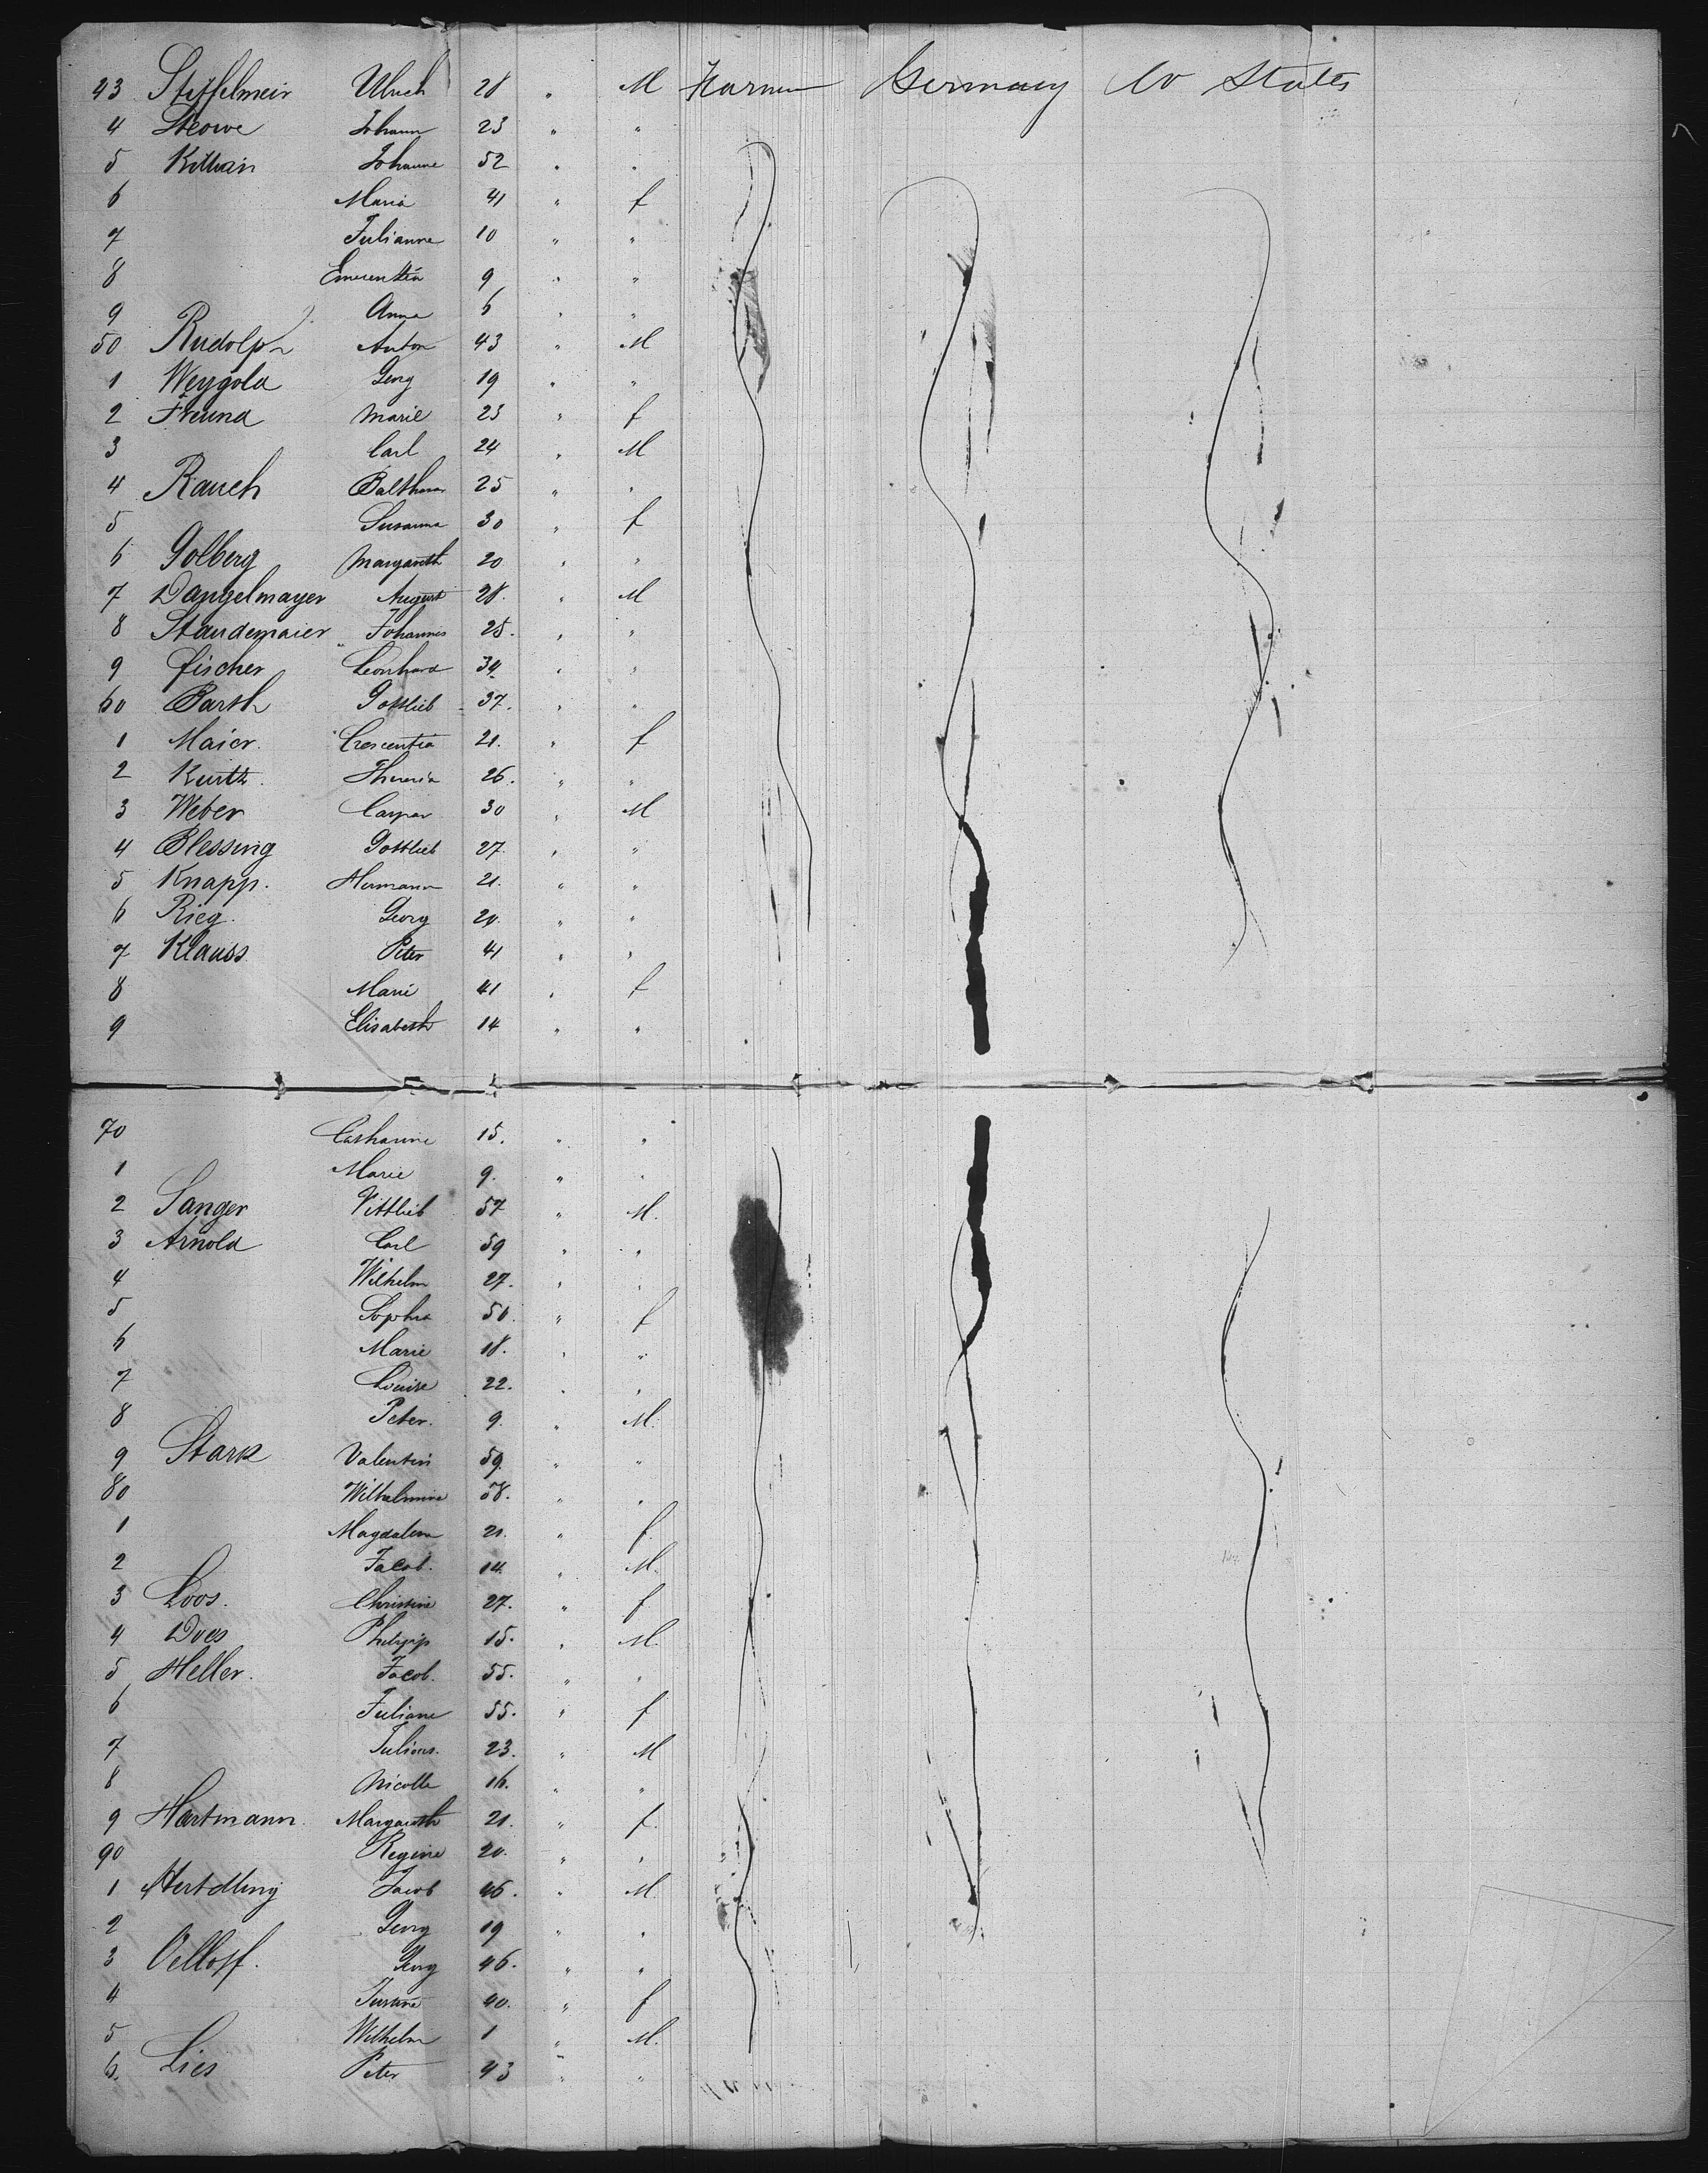 43 Stiffelmeir Ulrich 28 " M Farmer Germany U States
4 Steowe Johann 23 " "
5 Johanne 52 " "
6 Maria 41 " f
7 Julianne 10 " "
8 9 " "
9 Anna 6 " "
50 Rudolph Anton 43 " M
1 Weygold Georg 19 " "
2 Freund Marie 23 " f
3 Carl 24 " M
4 Rauch Balthasar 25 " "
5 Susanna 30 " f
6 Golberg Margareth 20 " "
7 Dangelmayer August 28. " M
8 Staudemaier Johannes 25. " "
9 Fischer Leonhard 34. " "
60 Barth Gottlieb 37. " "
1 Maier. Crescentia 21. " f
2 Kurtz. Theresia 26. " "
3 Weber Caspar 30 " M
4 Blessing Gottlieb 27. " "
5 Knapp. Hermann 21. " "
6 Rieg. Georg 20. " "
7 Klauss Peter 41 " "
8 Marie 41 " f
9 Elisabeth 14 " "
70 Catharine 15. " "
1 Marie 9. " "
2 Sanger Gottlieb 57 " M.
3 Arnold Carl 59 " "
4 Wilhelm 27. " "
5 Sophia 50. " f
6 Marie 18. " "
7 Louise 22. " "
8 Peter. 9. " M.
9 Stark Valentin 59. " "
80 Wilhelmine 58. " "
1 Magdalena 21. " f.
2 Jacob. 14. " M.
3 Loos. Christine 27. " f
4 Does Philipp 15. " M.
5 Heller. Jacob. 55. " "
6 Juliane 55. " f
7 Julius. 23. " M
8 Nicolle 16. " "
9 Hartmann. Margareth 21. " f.
90 Regine 20. " "
1 Hertdling Jacob 46. " M
2 Georg 19 " "
3 Georg 46. " "
4 40. " f
5 Wilhelm 1 " M.
6. Lies Peter 43 " "